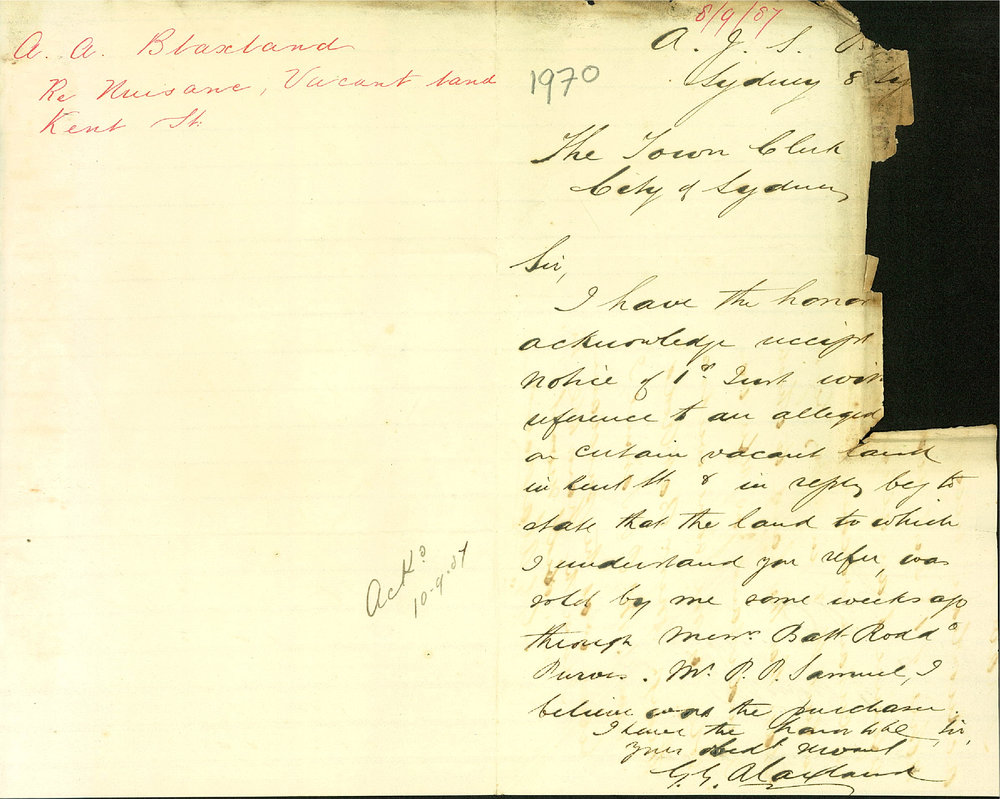 A. A. Blaxland
Re Nuisanc, Vacant land
Kent St.
Ackd
10.9.87
8/9/87
1970
A. J. S. B
Sydney 8 Se
The Town Clerk
City of Sydney
Sir,
I have the honor
acknowledge receipt
notice of 1st Inst with
reference to an alleged
on certain vacant land
in Kent St & in reply beg to
state that the land to which
I understand you refer, was
sold by me some weeks ago
through Messrs Batt Rodd &
Purves. Mr. P. P. Samuel, I
believe was the purchaser.
I have the honor to be, Sir,
your obedt servant
Blaxland